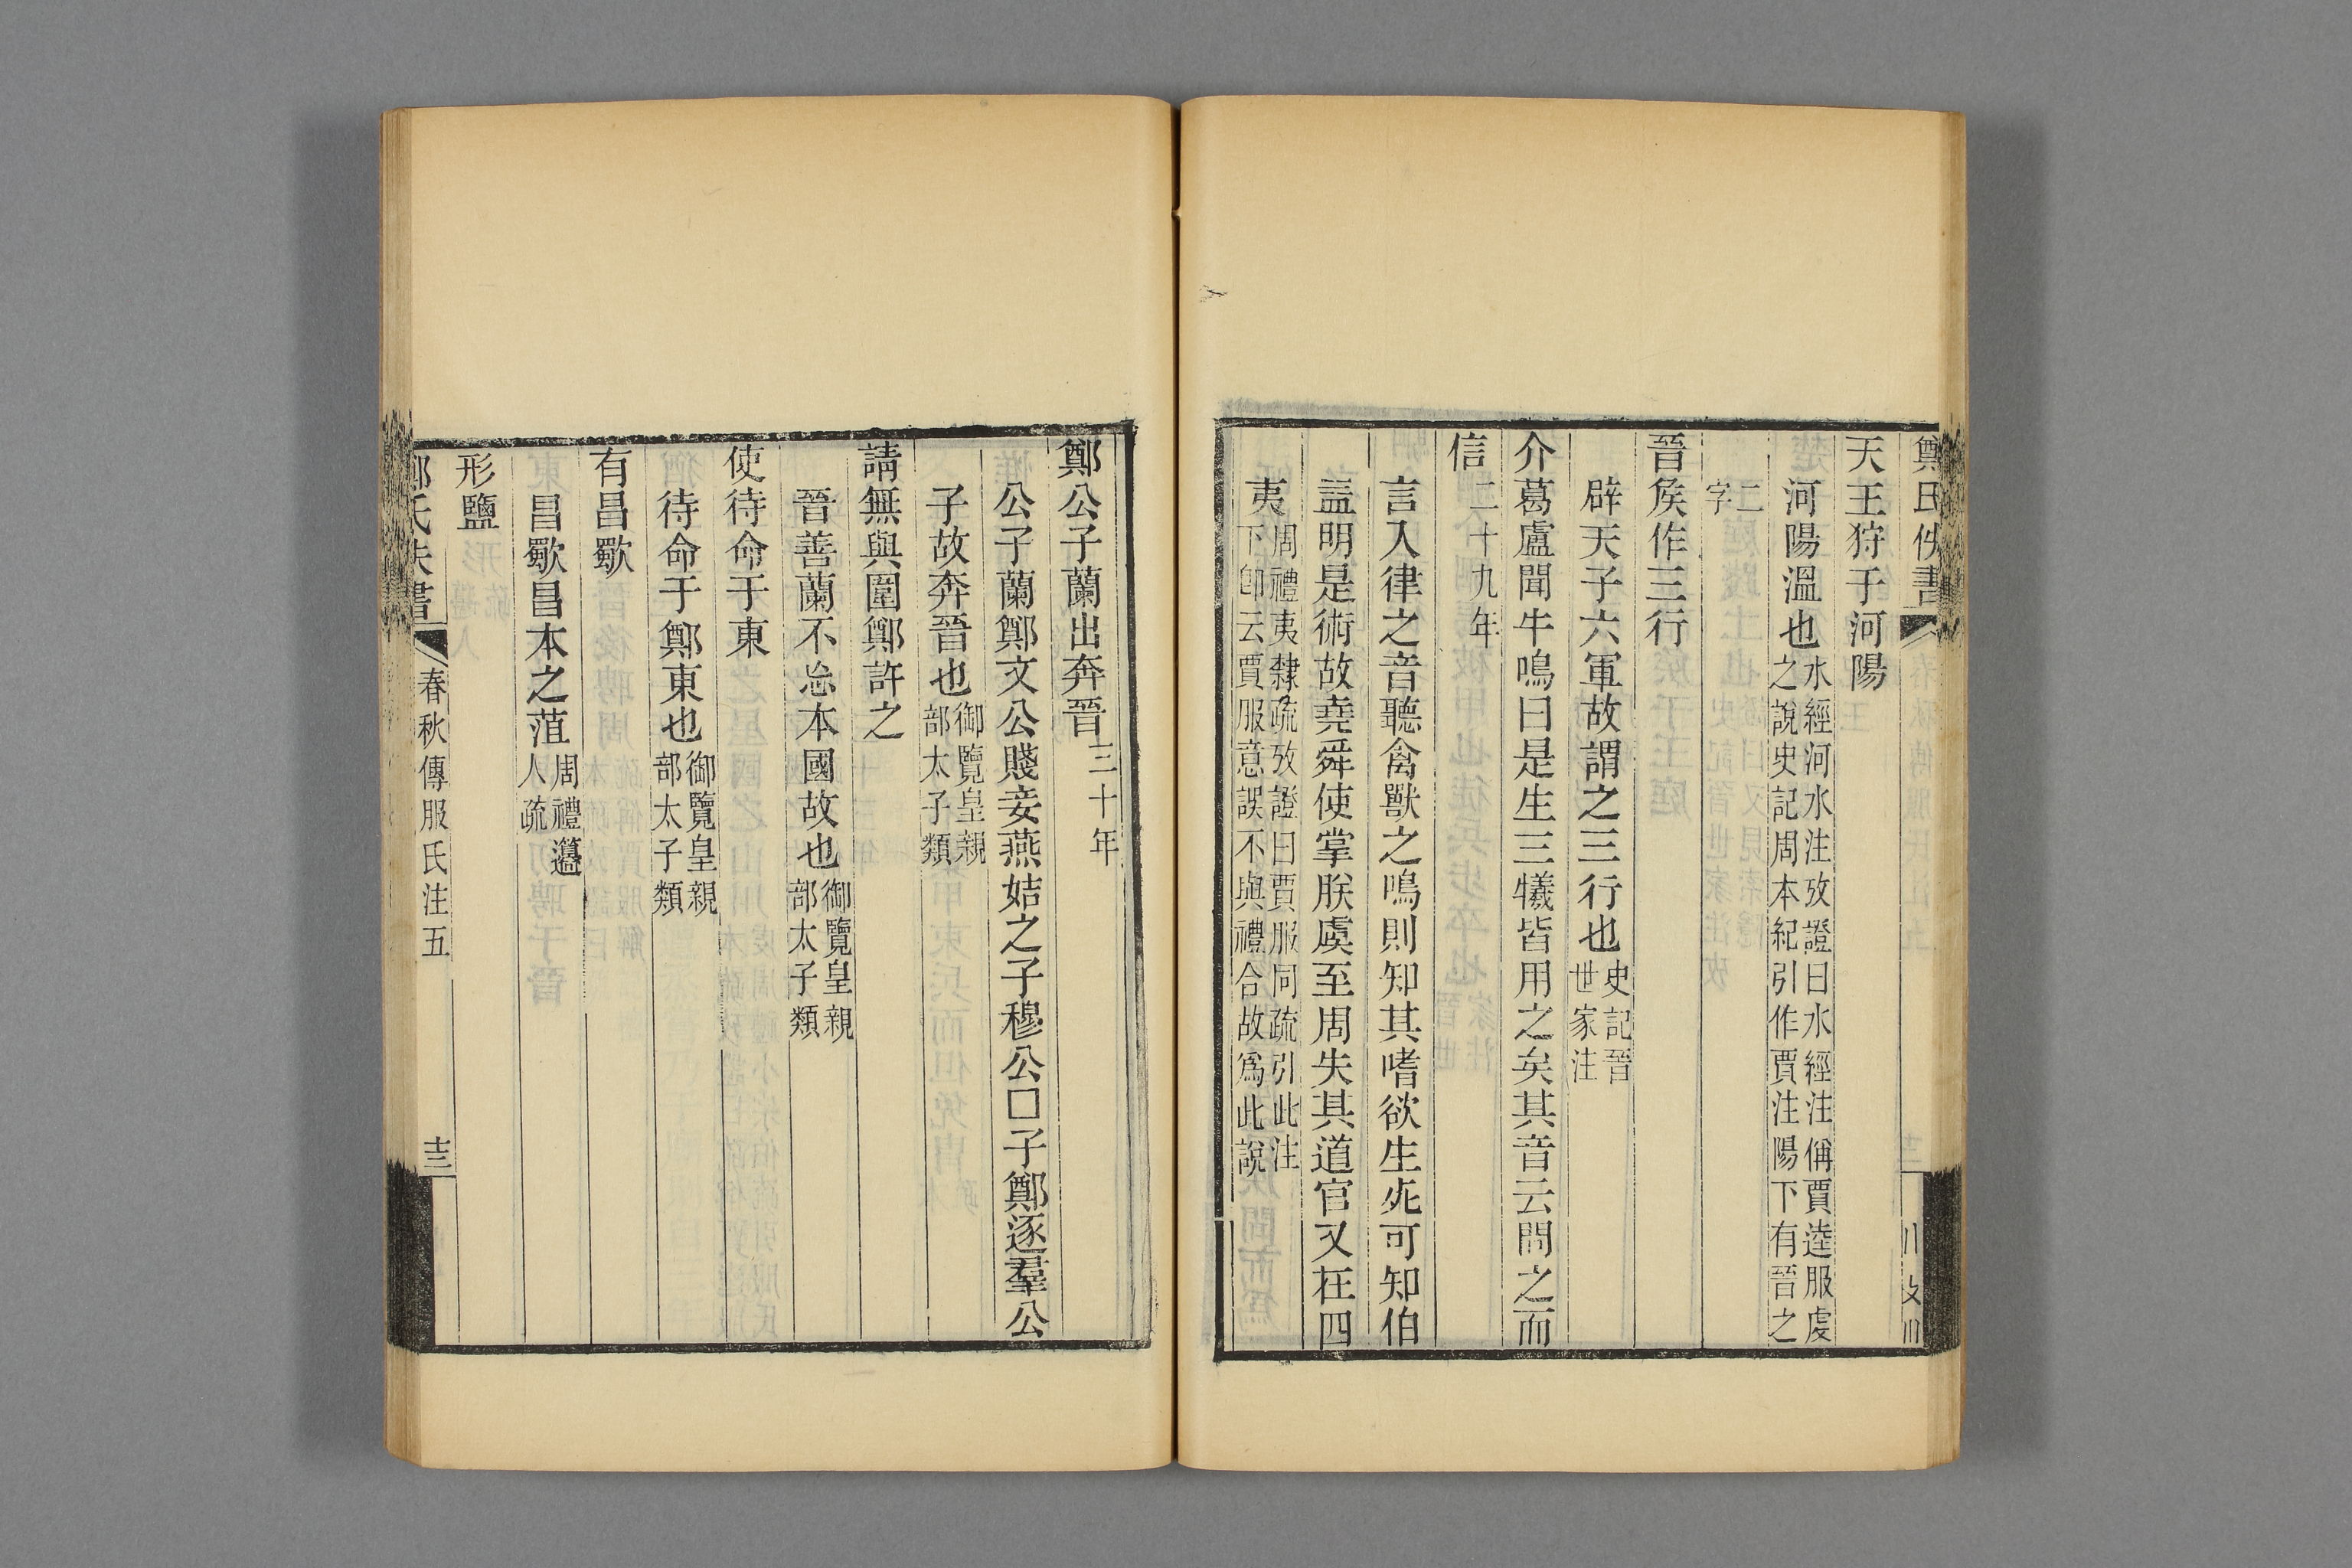 鄭氏佚書
天王狩于河陽
河陽溫也水經河水注攷證曰水經注偁賈逵服虔之說史記周本紀引作賈注陽下有晉之
二字
晉矦作三行
辟天子六軍故謂之三行也史記晉世家注
介葛盧聞牛鳴曰是生三犧皆用之矣其音云問之而
信二十九年
言入律之音聽禽獸之鳴則知其嗜欲生死可知伯
益明是術故堯舜使掌朕虞至周失其道官又在四
夷周禮夷隸疏攷證曰賈服同疏引此注下卽云賈服意誤不與禮合故爲此說
鄭公子蘭出奔晉三十年
公子蘭鄭文公賤妾燕姞之子穆公□子鄭逐羣公
子故奔晉也御覽皇親部太子類
請無與圍鄭許之
晉善蘭不忘本國故也御覽皇親部太子類
使待命于東
待命于鄭東也御覽皇親部太子類
有昌歜
昌歜昌本之菹周禮籩人疏
形鹽
鄭氏佚書 春秋傳服氏注五 十三